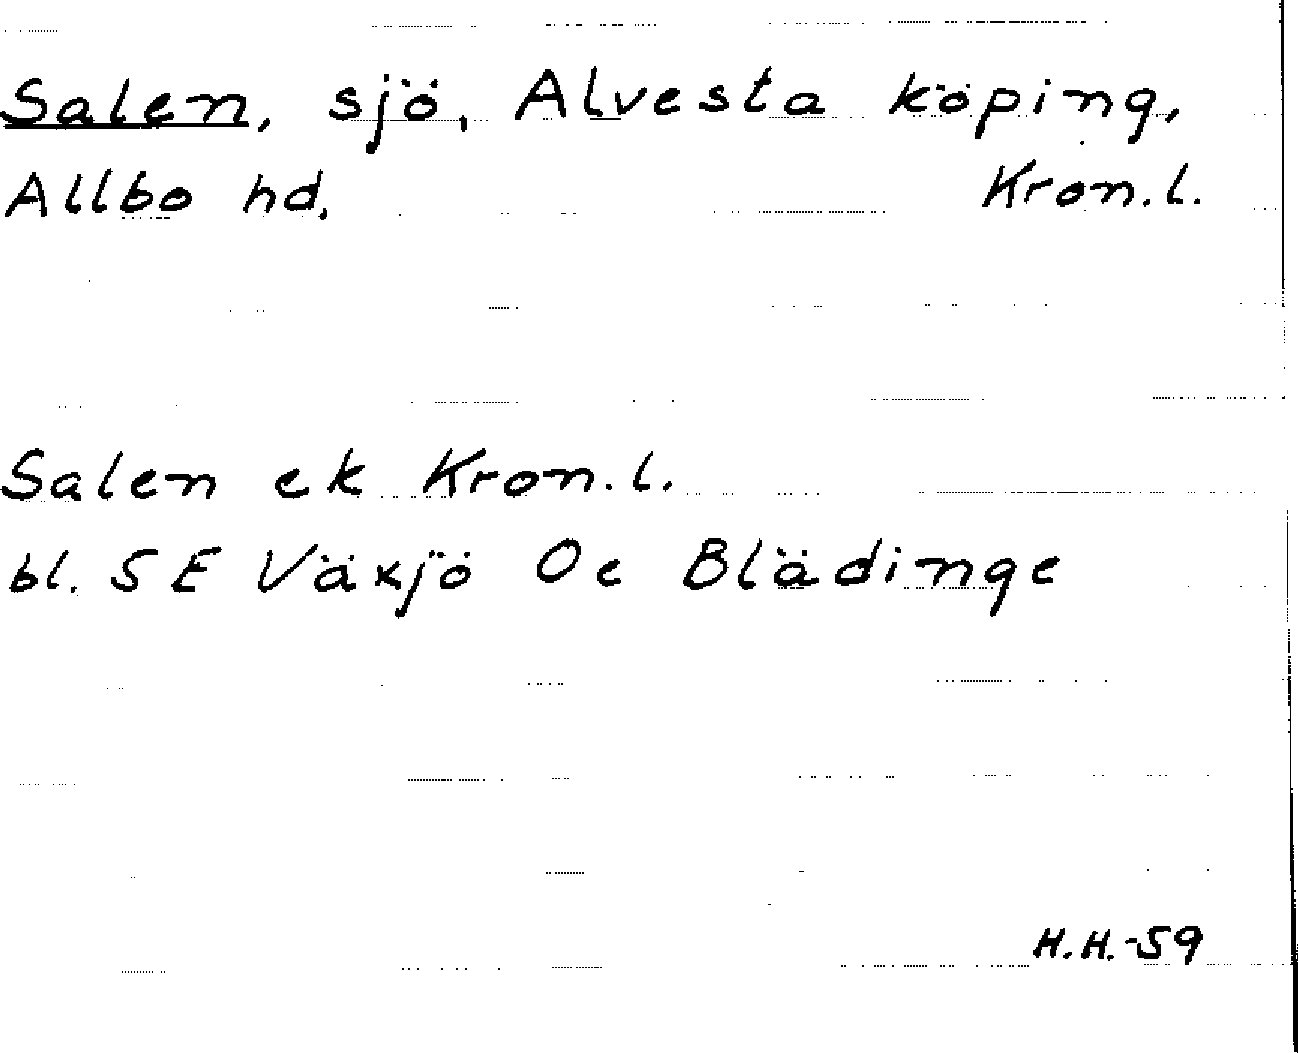 Salen, sjö, Alvesta köping,
Allbo hd. Kron.l.
Salen ek Kron.l.
bl. SE Växjö Oe Blädinge
H.H.-59